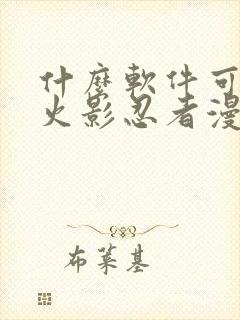 什麼軟件可
火影忍者漫
布萊基